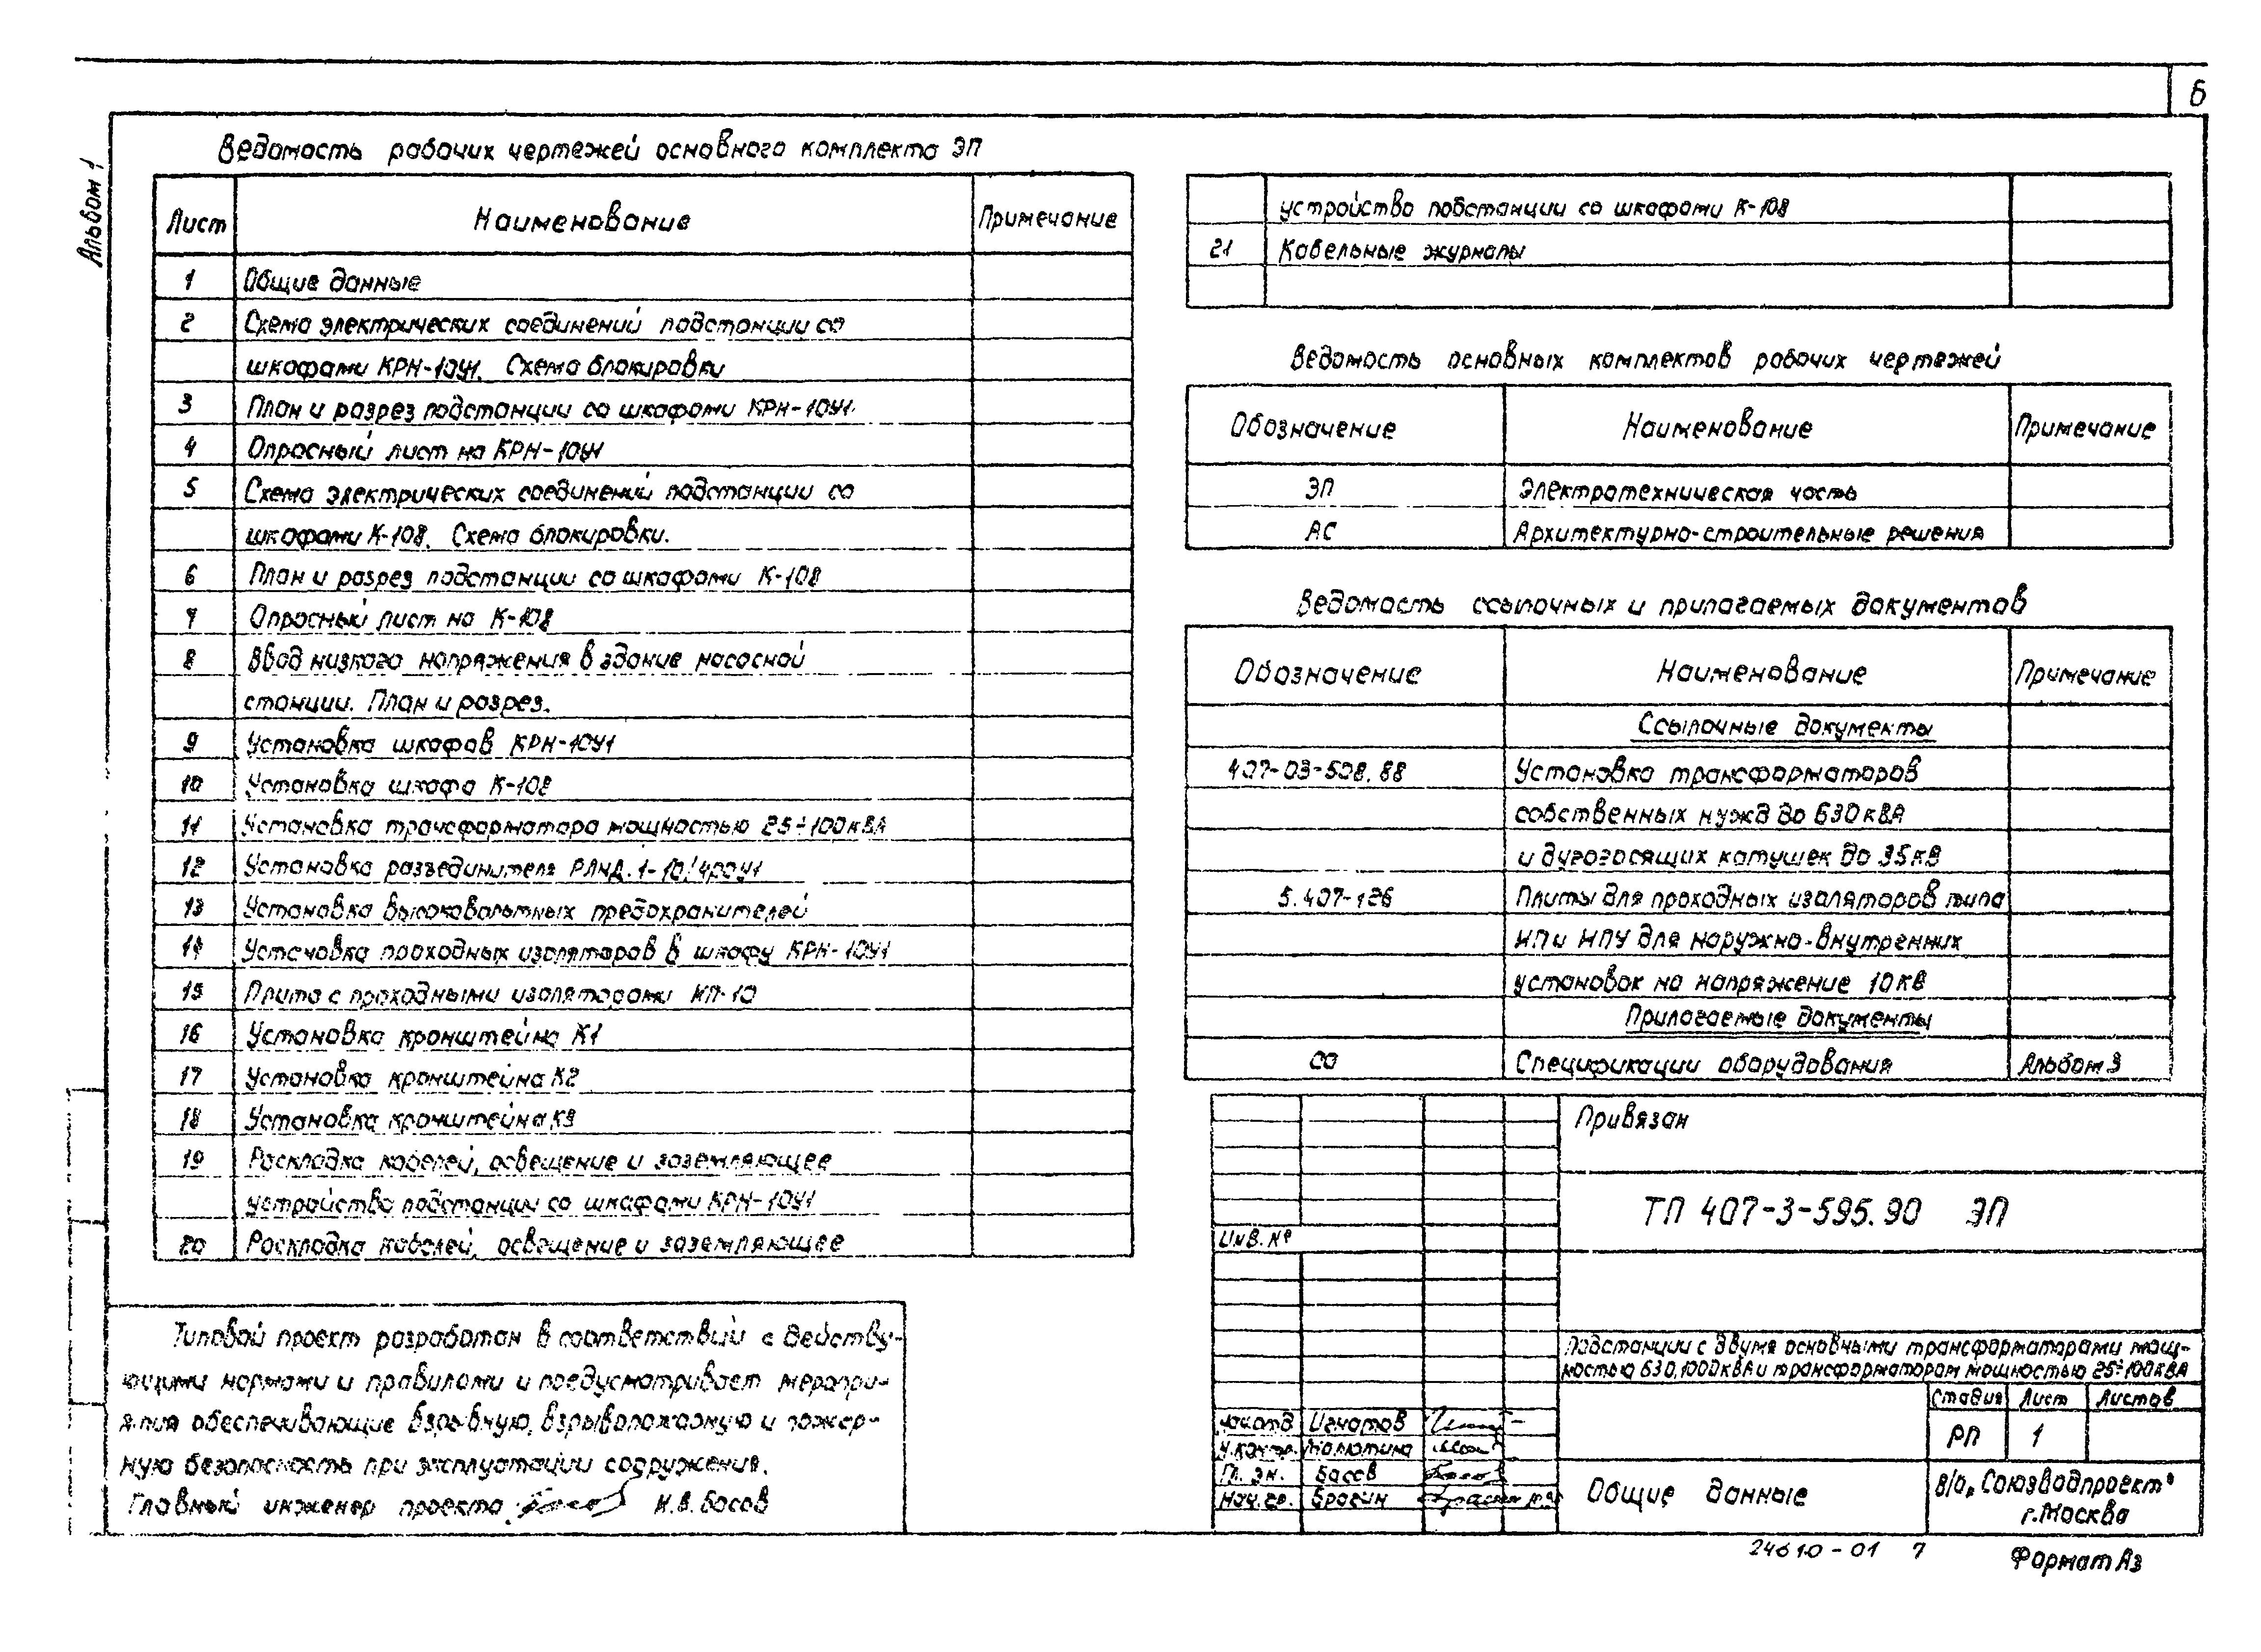 6
Альбом 1
Ведомость рабочих чертежей основного комплекта ЭП
Лист Наименование Примечание
1 Общие данные
2 Схема электрических соединений подстанции со
шкафами КРН-10У1. Схема блокировки
3 План и разрез подстанции со шкафами КРН-10У1.
4 Опросный лист на КРН-10У1
5 Схема электрических соединений подстанции со
шкафами К-108. Схема блокировки.
6 План и разрез подстанции со шкафами К-108
7 Опросный лист на К-108
8 Ввод низкого напряжения в здание насосной
станции. План и разрез.
9 Установка шкафов КРН-10У1
10 Установка шкафа К-108
11 Установка трансформатора мощностью 25÷100кВА
12 Установка разъединителя РЛНД.1-10/400У1
13 Установка высоковольтных предохранителей
14 Установка проходных изоляторов в шкафу КРН-10У1
15 Плита с проходными изоляторами ИП-10
16 Установка кронштейна К1
17 Установка кронштейна К2
18 Установка кронштейна К3
19 Раскладка кабелей, освещение и заземляющее
устройство подстанции со шкафами КРН-10У1
20 Раскладка кабелей, освещение и заземляющее
устройство подстанции со шкафами К-108
21 Кабельные журналы
Ведомость основных комплектов рабочих чертежей
Обозначение Наименование Примечание
ЭП Электротехническая часть
АС Архитектурно-строительные решения
Ведомость ссылочных и прилагаемых документов
Обозначение Наименование Примечание
Ссылочные документы
407-03-508.88 Установка трансформаторов
собственных нужд до 630кВА
и дугогасящих катушек до 35кВ
5.407-126 Плиты для проходных изоляторов типа
ИП и ИПУ для наружно-внутренних
установок на напряжение 10кВ
Прилагаемые документы
СО Спецификации оборудования Альбом 3
Типовой проект разработан в соответствии с действу-
ющими нормами и правилами и предусматривает меропри-
ятия обеспечивающие взрывную, взрывопожарную и пожар-
ную безопасность при эксплуатации сооружения.
Главный инженер проекта И.В. Басов
Привязан
ТП 407-3-595.90 ЭП
Инв. №
Подстанции с двумя основными трансформаторами мощ-
ностью 630,1000кВА и трансформатором мощностью 25÷100кВА
Стадия Лист Листов
РП 1
Нач.отд Игнатов
Н.контр. Малютина
Гл. эк. Басов
Нач.ср. Брагин
Общие данные
В/О "Союзводпроект"
г. Москва
24610-01 7
Формат А3